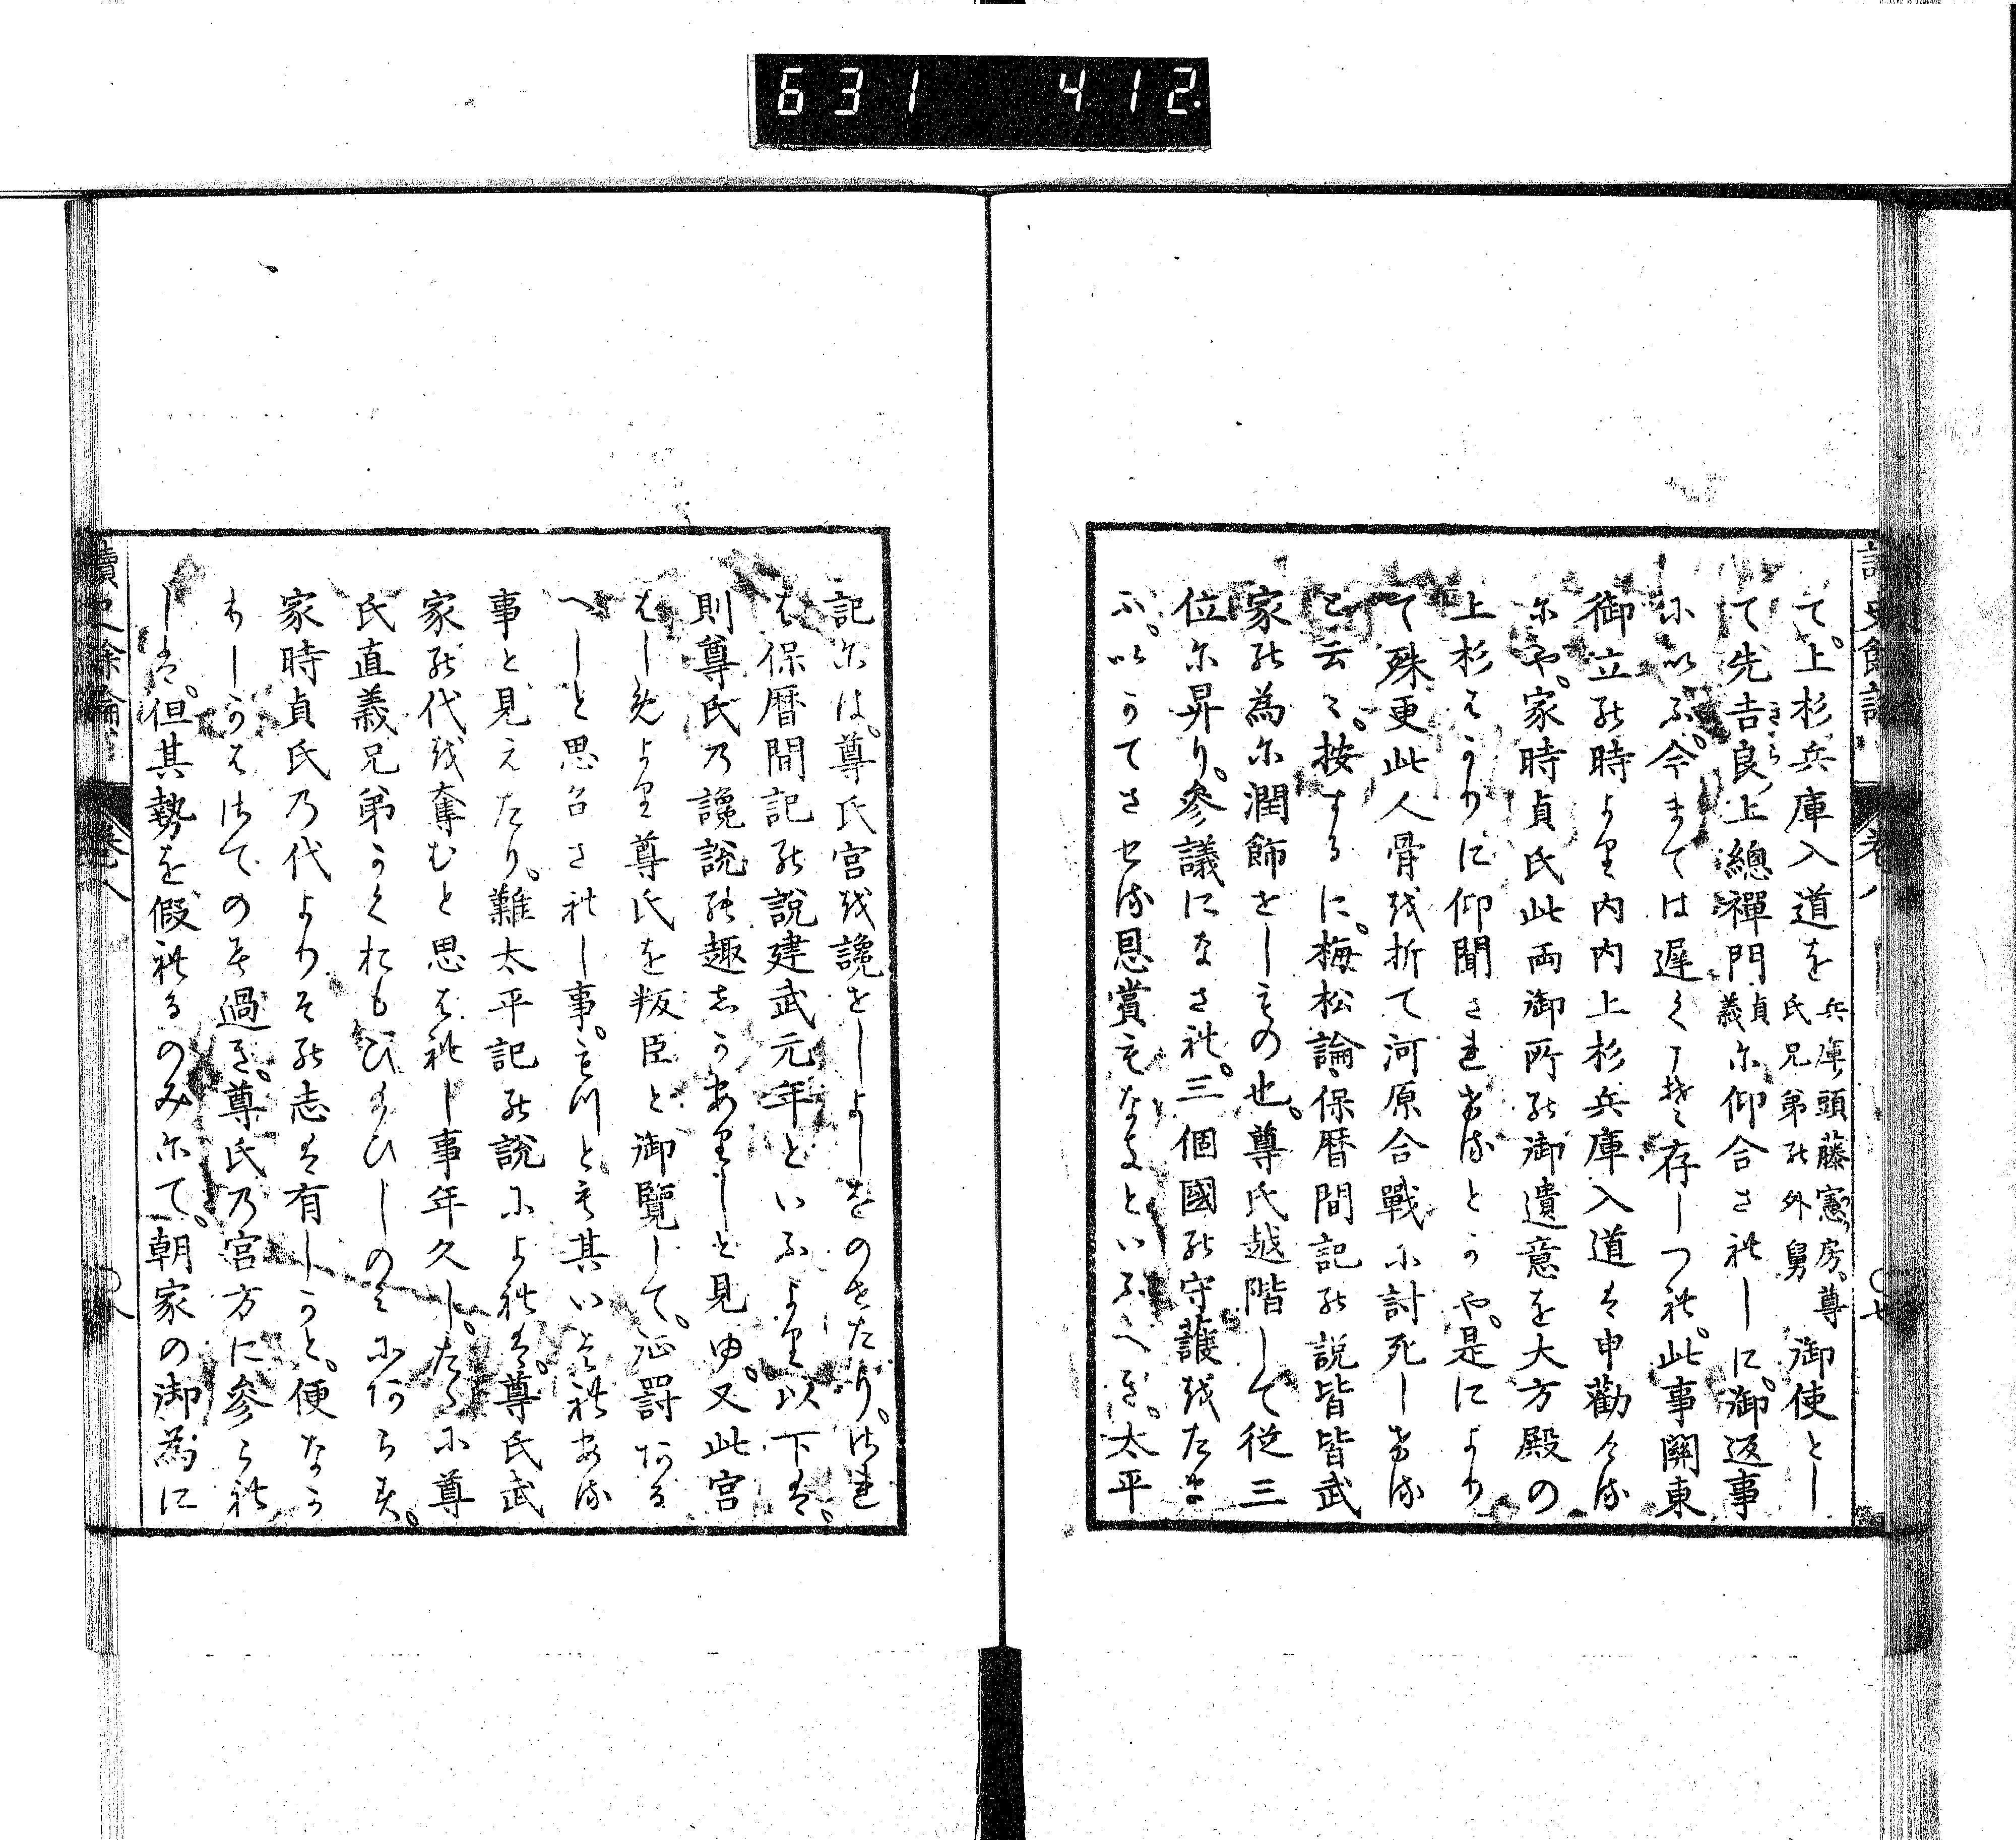 631 412
て。上杉兵庫入道を兵庫頭藤憲房。尊氏兄弟の外舅御使とし
て先吉良きら上總禪門貞義に仰合されしに。御返事
にいふ。今まては遅く存しつれ。此事關東
御立の時より内内上杉兵庫入道は申勸ける
にや。家時貞氏此両御所の御遺意を大方殿の
上杉はかりに仰聞されけるとかや。是により
て殊更此人骨を折て河原合戰に討死しける
と云々。按するに。梅松論保暦間記の説皆皆武
家の為に潤飾をしもの也。尊氏越階して従三
位に昇り。參議になされ。三個國の守護をたま
ふ。いかてさせる恩賞もなきといふへき。太平
記には。尊氏宮を讒をしよしをのせたり。され
は保暦間記の説建武元年といふより以下は。
則尊氏の讒説の趣しかありしと見ゆ。又此宮
はしめより尊氏を叛臣と御覽して。征罰ある
へしと思召されし事。もつとも其いはれある
事と見えたり。難太平記の説によれは。尊氏武
家の代を奪むと思はれし事年久し。たゝに尊
氏直義兄弟かくおもひ給ひしのみにあらす。
家時貞氏の代よりその志は有しかと。便なか
りしかはさてのみ過き。尊氏の宮方に參られ
しは。但其勢を假れるのみにて。朝家の御為に
讀史餘論 卷八